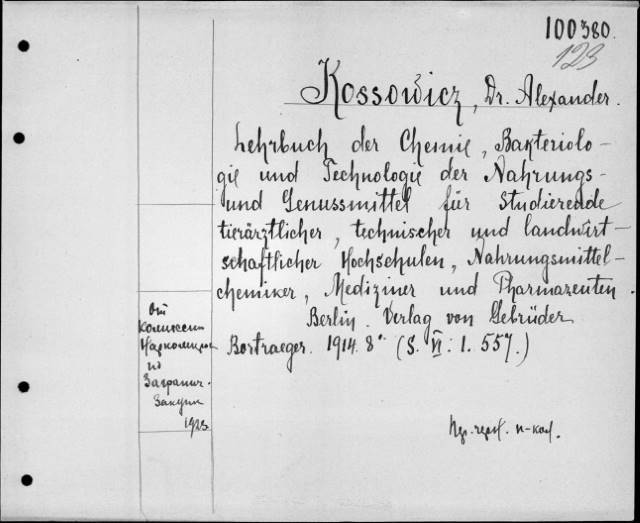 100380.
123
Kossowicz, Dr. Alexander.
Lehrbuch der Chemie, Bakteriolo-
gie und Technologie der Nahrungs-
und Genussmittel für Studierende
tierärztlicher, technischer und landwirt-
schaftlicher Hochschulen, Nahrungsmittel-
chemiker, Mediziner und Pharmazeuten.
Berlin. Verlag von Gebrüder
Bortraeger. 1914. 8° (S. VI: 1. 557.)
От
Комиссии
по
Загранич.
Закупк
1923